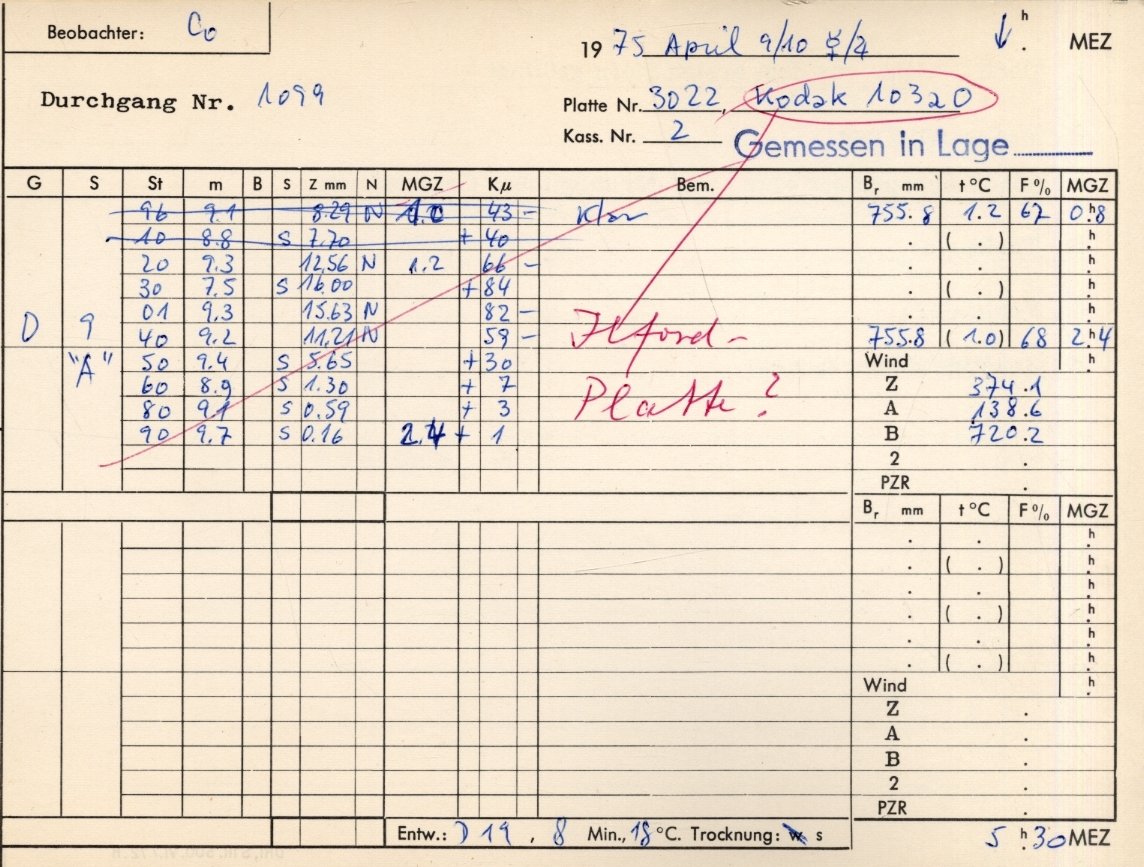 Beobachter: Co
1975 April 9/10 ☿/♃ ↓ h . MEZ
Durchgang Nr. 1099
Platte Nr. 3022, Kodak 10320
Kass. Nr. 2
Gemessen in Lage
G S St m B S Z mm N MGZ Kμ Bem. Br mm t °C F% MGZ
96 9.1 8.29 N 1.0 43 - Klar 755.8 1.2 67 0.h8
10 8.8 S 7.70 + 40 . ( . ) .h
20 9.3 12.56 N 1.2 66 - . .h
30 7.5 S 16.00 + 84 . ( . ) .h
01 9.3 15.63 N 82 - . .h
D 9 40 9.2 11.21 N 59 - Ilford- 755.8 ( 1.0) 68 2.h4
"A" 50 9.4 S 5.65 + 30 Wind .h
60 8.9 S 1.30 + 7 Platte? Z 374.1
80 9.1 S 0.59 + 3 A 138.6
90 9.7 S 0.16 2.4 + 1 B 720.2
2 .
PZR .
Br mm t °C F% MGZ
. .h
. ( . ) .h
. .h
. ( . ) .h
. .h
. ( . ) .h
Wind .h
Z .
A .
B .
2 .
PZR .
Entw.: D 19, 8 Min., 18 °C. Trocknung: w s 5 h.30 MEZ